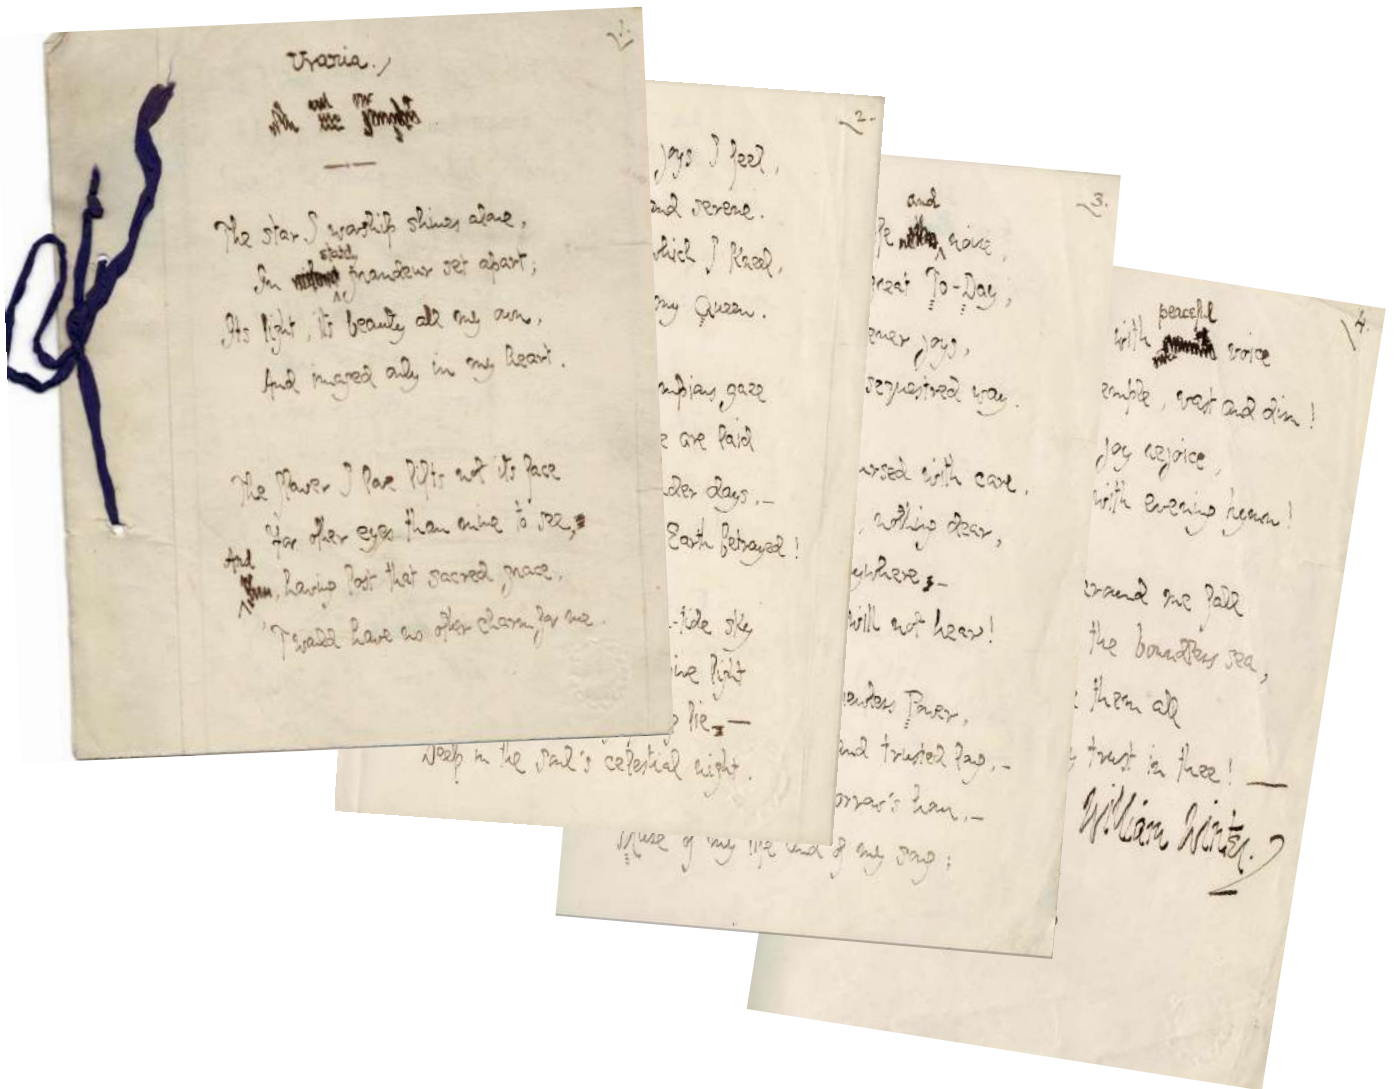 1.
Urania.
The star I worship shines alone,
stately
In grandeur set apart;
Its light, its beauty all my own,
And imaged only in my heart.
The flower I love lifts not its face
For other eyes than mine to see,
And
having lost that sacred grace,
'Twould have no other charm for me.
2.
joys I feel,
and serene.
which I kneel,
my Queen.
gaze
are laid
days,—
Earth betrayed!
-tide sky
light
lie,—
Deep in the soul's celestial night.
3.
and
noise,
great To-Day;
joys,
sequestred way.
with care,
, nothing dear,
where,—
will not hear!
Power,
and trusted long,—
morrow's hour,—
Muse of my life and of my song;
4.
peaceful
with voice
temple, vast and dim!
joy rejoice,
with evening hymn!
around me fall
the boundless sea,
them all
trust in thee! —
William Winter.